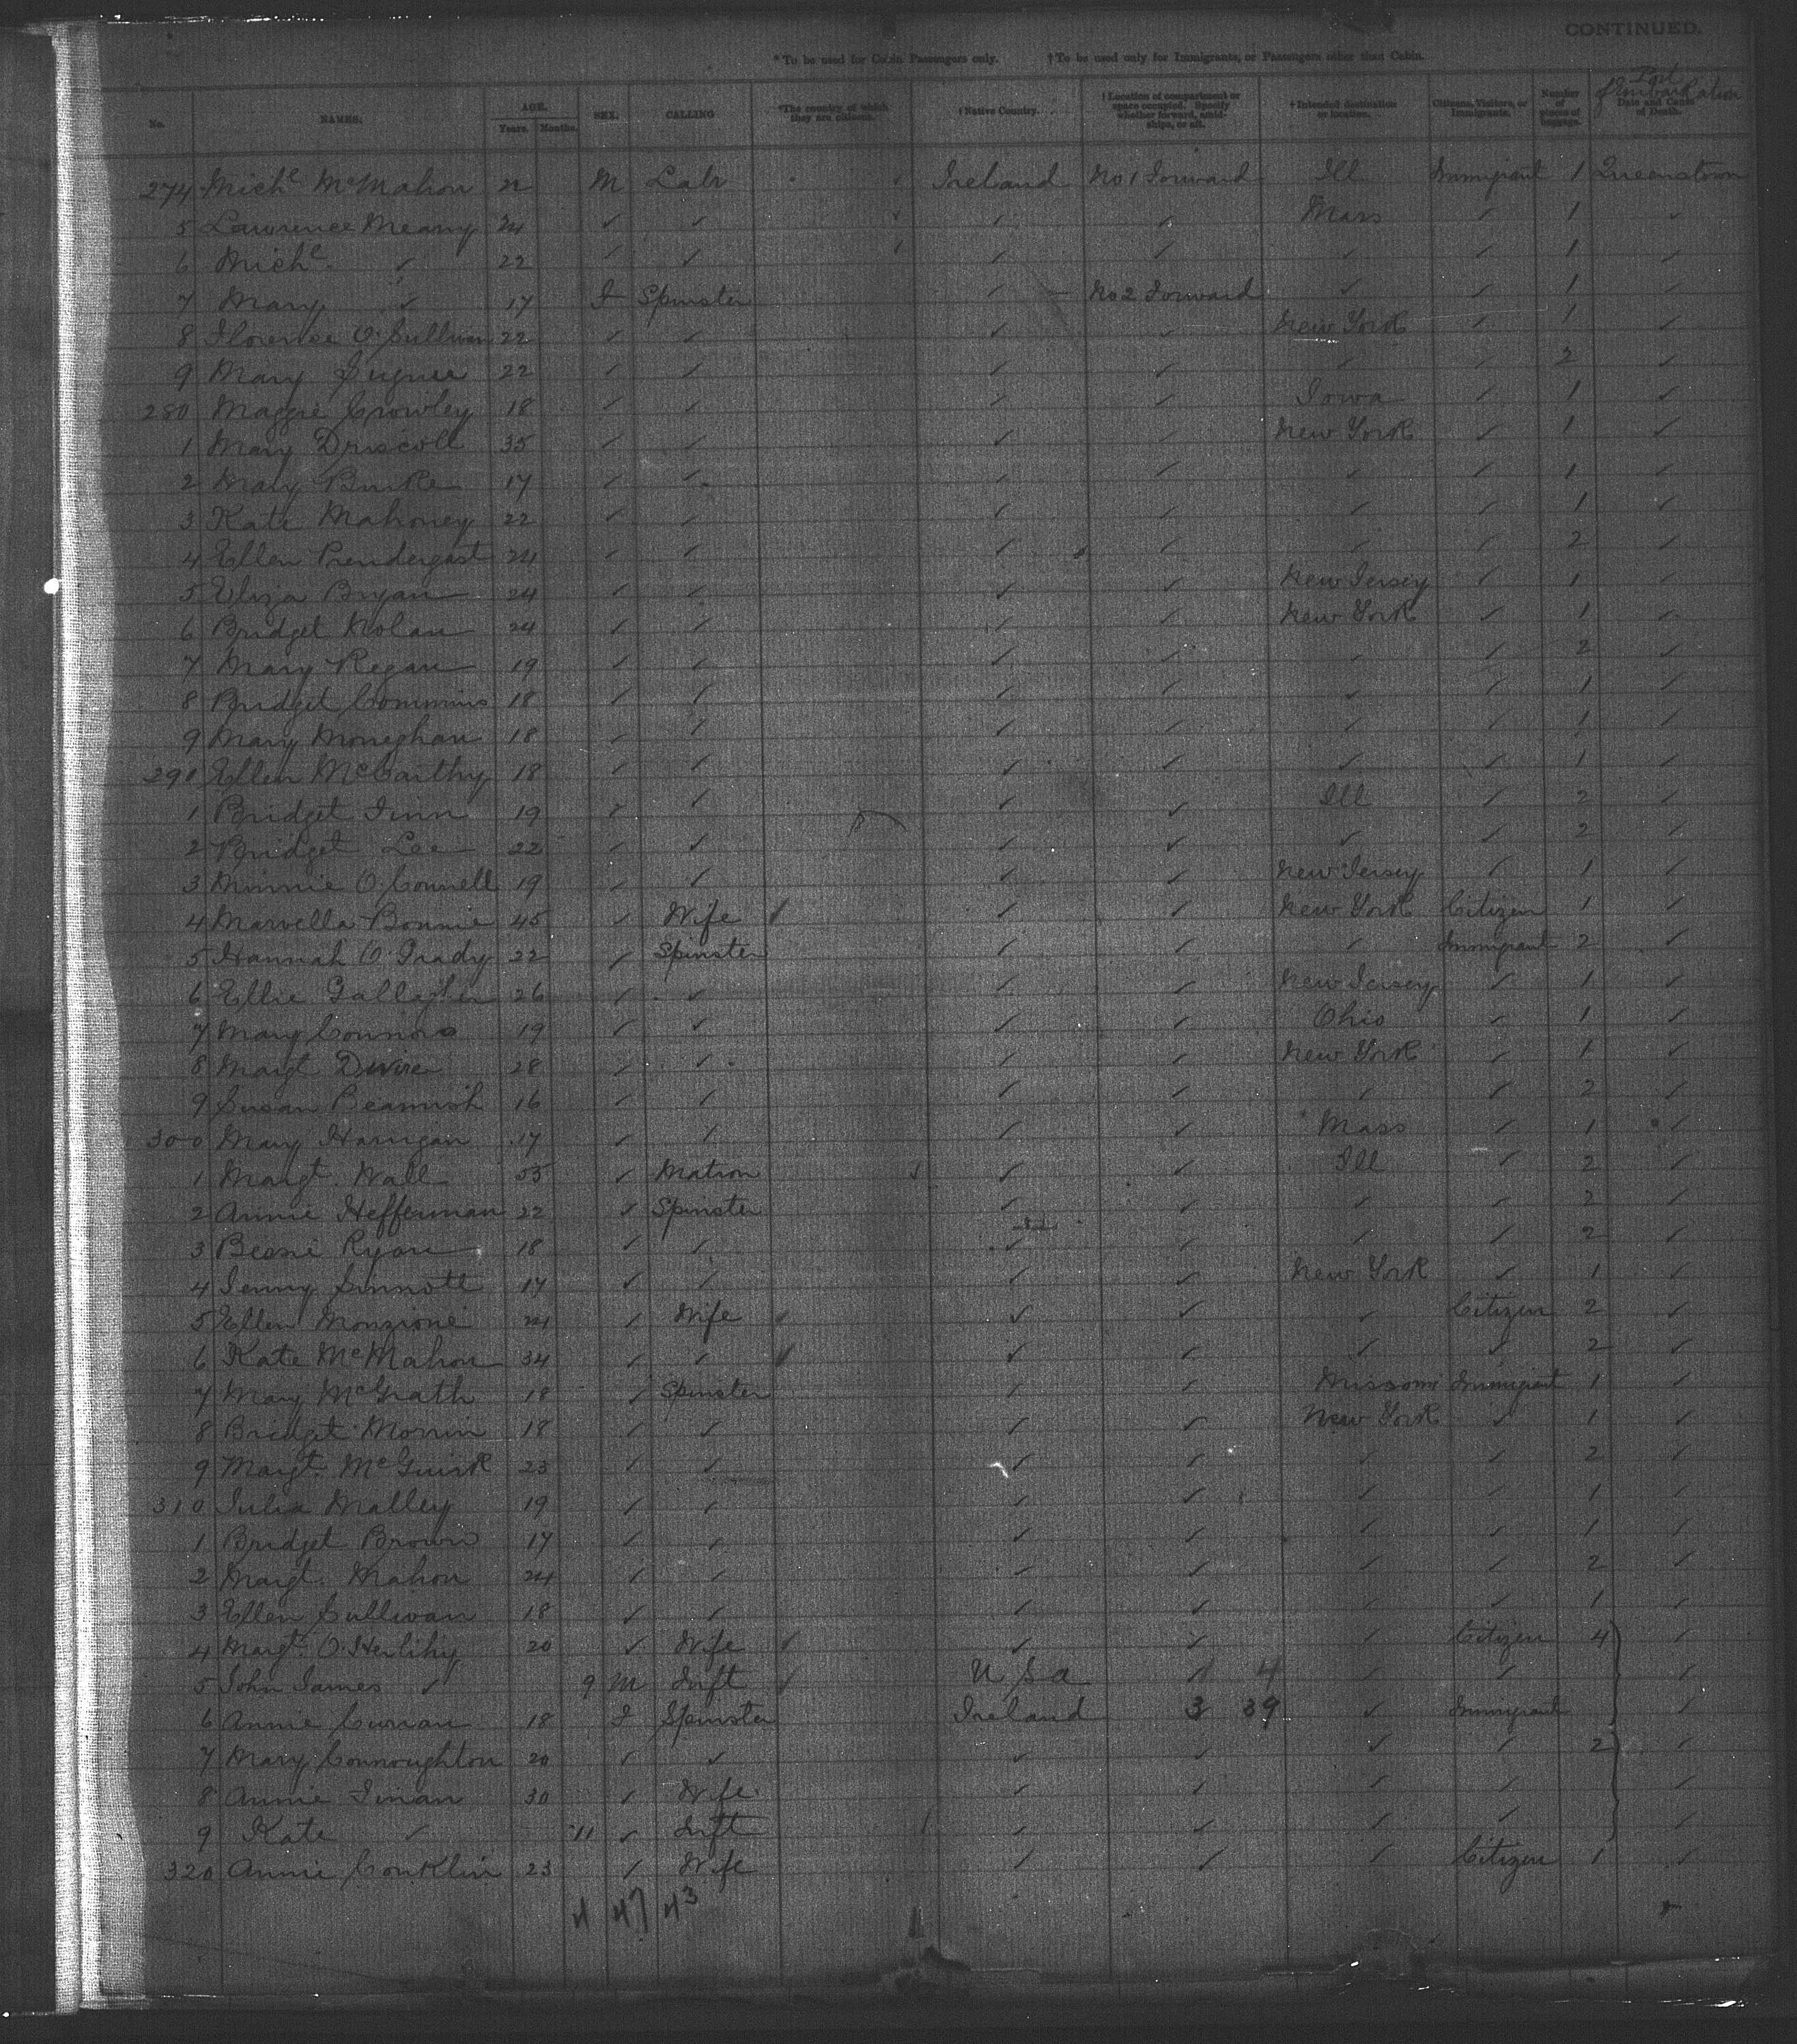 CONTINUED.
*To be used for Cabin Passengers only. †To be used only for Immigrants, or Passengers other than Cabin.
No. NAMES. AGE. Years. Months. SEX. CALLING *The country of which they are citizens. †Native Country. †Location of compartment or space occupied. Specify whether forward, amidships, or aft. †Intended destination or location. Citizens, Visitors, or Immigrants. Number of pieces of baggage. Port of Embarkation Date and Cause of Death.
274 Michl McMahon 22 M Labr Ireland No 1 Forward Ill Immigrant 1 Queenstown
5 Lawrence Meany 24 ✓ ✓ ✓ ✓ Mass ✓ 1 ✓
6 Michl ✓ 22 ✓ ✓ ✓ ✓ ✓ ✓ 1 ✓
7 Mary ✓ 17 F Spinster ✓ No 2 Forward ✓ ✓ 1 ✓
8 Florence O'Sullivan 22 ✓ ✓ ✓ ✓ New York ✓ 1 ✓
9 Mary 22 ✓ ✓ ✓ ✓ ✓ ✓ 2 ✓
280 Maggie Crowley 18 ✓ ✓ ✓ ✓ Iowa ✓ 1 ✓
1 Mary Driscoll 35 ✓ ✓ ✓ ✓ New York ✓ 1 ✓
2 Mary Burke 17 ✓ ✓ ✓ ✓ ✓ ✓ 1 ✓
3 Kate Mahoney 22 ✓ ✓ ✓ ✓ ✓ ✓ 1 ✓
4 Ellen Prendergast 24 ✓ ✓ ✓ ✓ ✓ ✓ 2 ✓
5 Eliza Bryan 24 ✓ ✓ ✓ ✓ New Jersey ✓ 1 ✓
6 Bridget Nolan 24 ✓ ✓ ✓ ✓ New York ✓ 1 ✓
7 Mary Regan 19 ✓ ✓ ✓ ✓ ✓ ✓ 2 ✓
8 Bridget Commins 18 ✓ ✓ ✓ ✓ ✓ ✓ 1 ✓
9 Mary Moneghan 18 ✓ ✓ ✓ ✓ ✓ ✓ 1 ✓
290 Ellen McCarthy 18 ✓ ✓ ✓ ✓ ✓ ✓ 1 ✓
1 Bridget Finn 19 ✓ ✓ ✓ ✓ Ill ✓ 2 ✓
2 Bridget Lee 22 ✓ ✓ ✓ ✓ ✓ ✓ 2 ✓
3 Minnie O'Connell 19 ✓ ✓ ✓ ✓ New Jersey ✓ 1 ✓
4 Marvella Bonnie 45 ✓ Wife ✓ ✓ New York Citizen 1 ✓
5 Hannah O'Grady 22 ✓ Spinster ✓ ✓ ✓ Immigrant 2 ✓
6 Ellie Gallagher 26 ✓ ✓ ✓ ✓ New Jersey ✓ 1 ✓
7 Mary Connors 19 ✓ ✓ ✓ ✓ Ohio ✓ 1 ✓
8 Margt Divire 28 ✓ ✓ ✓ ✓ New York ✓ 1 ✓
9 Susan Beamish 16 ✓ ✓ ✓ ✓ ✓ ✓ 2 ✓
300 Mary Harrigan 17 ✓ ✓ ✓ ✓ Mass ✓ 1 ✓
1 Margt. Wall 53 ✓ Matron ✓ ✓ Ill ✓ 2 ✓
2 Annie Heffernan 22 ✓ Spinster ✓ ✓ ✓ ✓ 2 ✓
3 Bessie Ryan 18 ✓ ✓ ✓ ✓ ✓ ✓ 2 ✓
4 Jenny Sinnott 17 ✓ ✓ ✓ ✓ New York ✓ 1 ✓
5 Ellen Monzione 24 ✓ Wife ✓ ✓ ✓ Citizen 2 ✓
6 Kate McMahon 34 ✓ ✓ ✓ ✓ ✓ ✓ 2 ✓
7 Mary McGrath 18 ✓ Spinster ✓ ✓ Missouri Immigrant 1 ✓
8 Bridget Morrin 18 ✓ ✓ ✓ ✓ New York ✓ 1 ✓
9 Margt. McGuirk 23 ✓ ✓ ✓ ✓ ✓ ✓ 2 ✓
310 Julia Malley 19 ✓ ✓ ✓ ✓ ✓ ✓ 1 ✓
1 Bridget Brown 17 ✓ ✓ ✓ ✓ ✓ ✓ 1 ✓
2 Margt. Mahon 24 ✓ ✓ ✓ ✓ ✓ ✓ 2 ✓
3 Ellen Sullivan 18 ✓ ✓ ✓ ✓ ✓ ✓ 1 ✓
4 Margt. O'Herlihy 20 ✓ Wife ✓ ✓ ✓ Citizen 4 ✓
5 John James ✓ 9 M Inft U S A 1 4 ✓ ✓ ✓
6 Annie Curran 18 F Spinster Ireland 3 39 ✓ Immigrant ✓
7 Mary Connoughton 20 ✓ ✓ ✓ ✓ ✓ ✓ 2 ✓
8 Annie Finan 30 ✓ Wife ✓ ✓ ✓ ✓ ✓
9 Kate ✓ 11 ✓ Inft ✓ ✓ ✓ ✓ ✓
320 Annie Conklin 23 ✓ Wife ✓ ✓ ✓ Citizen 1 ✓
4 47 43